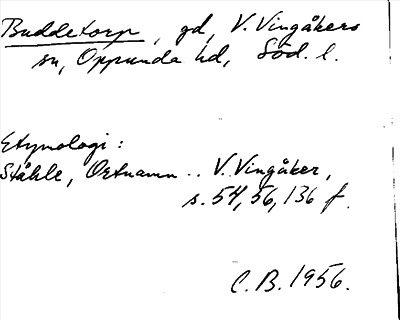 Buddetorp, gd, V. Vingåkers
sn, Oppunda hd, Söd. l.
Etymologi:
Ståhle, Ortnamn .. V. Vingåker,
s. 54, 56, 136 f.
C.B. 1956.